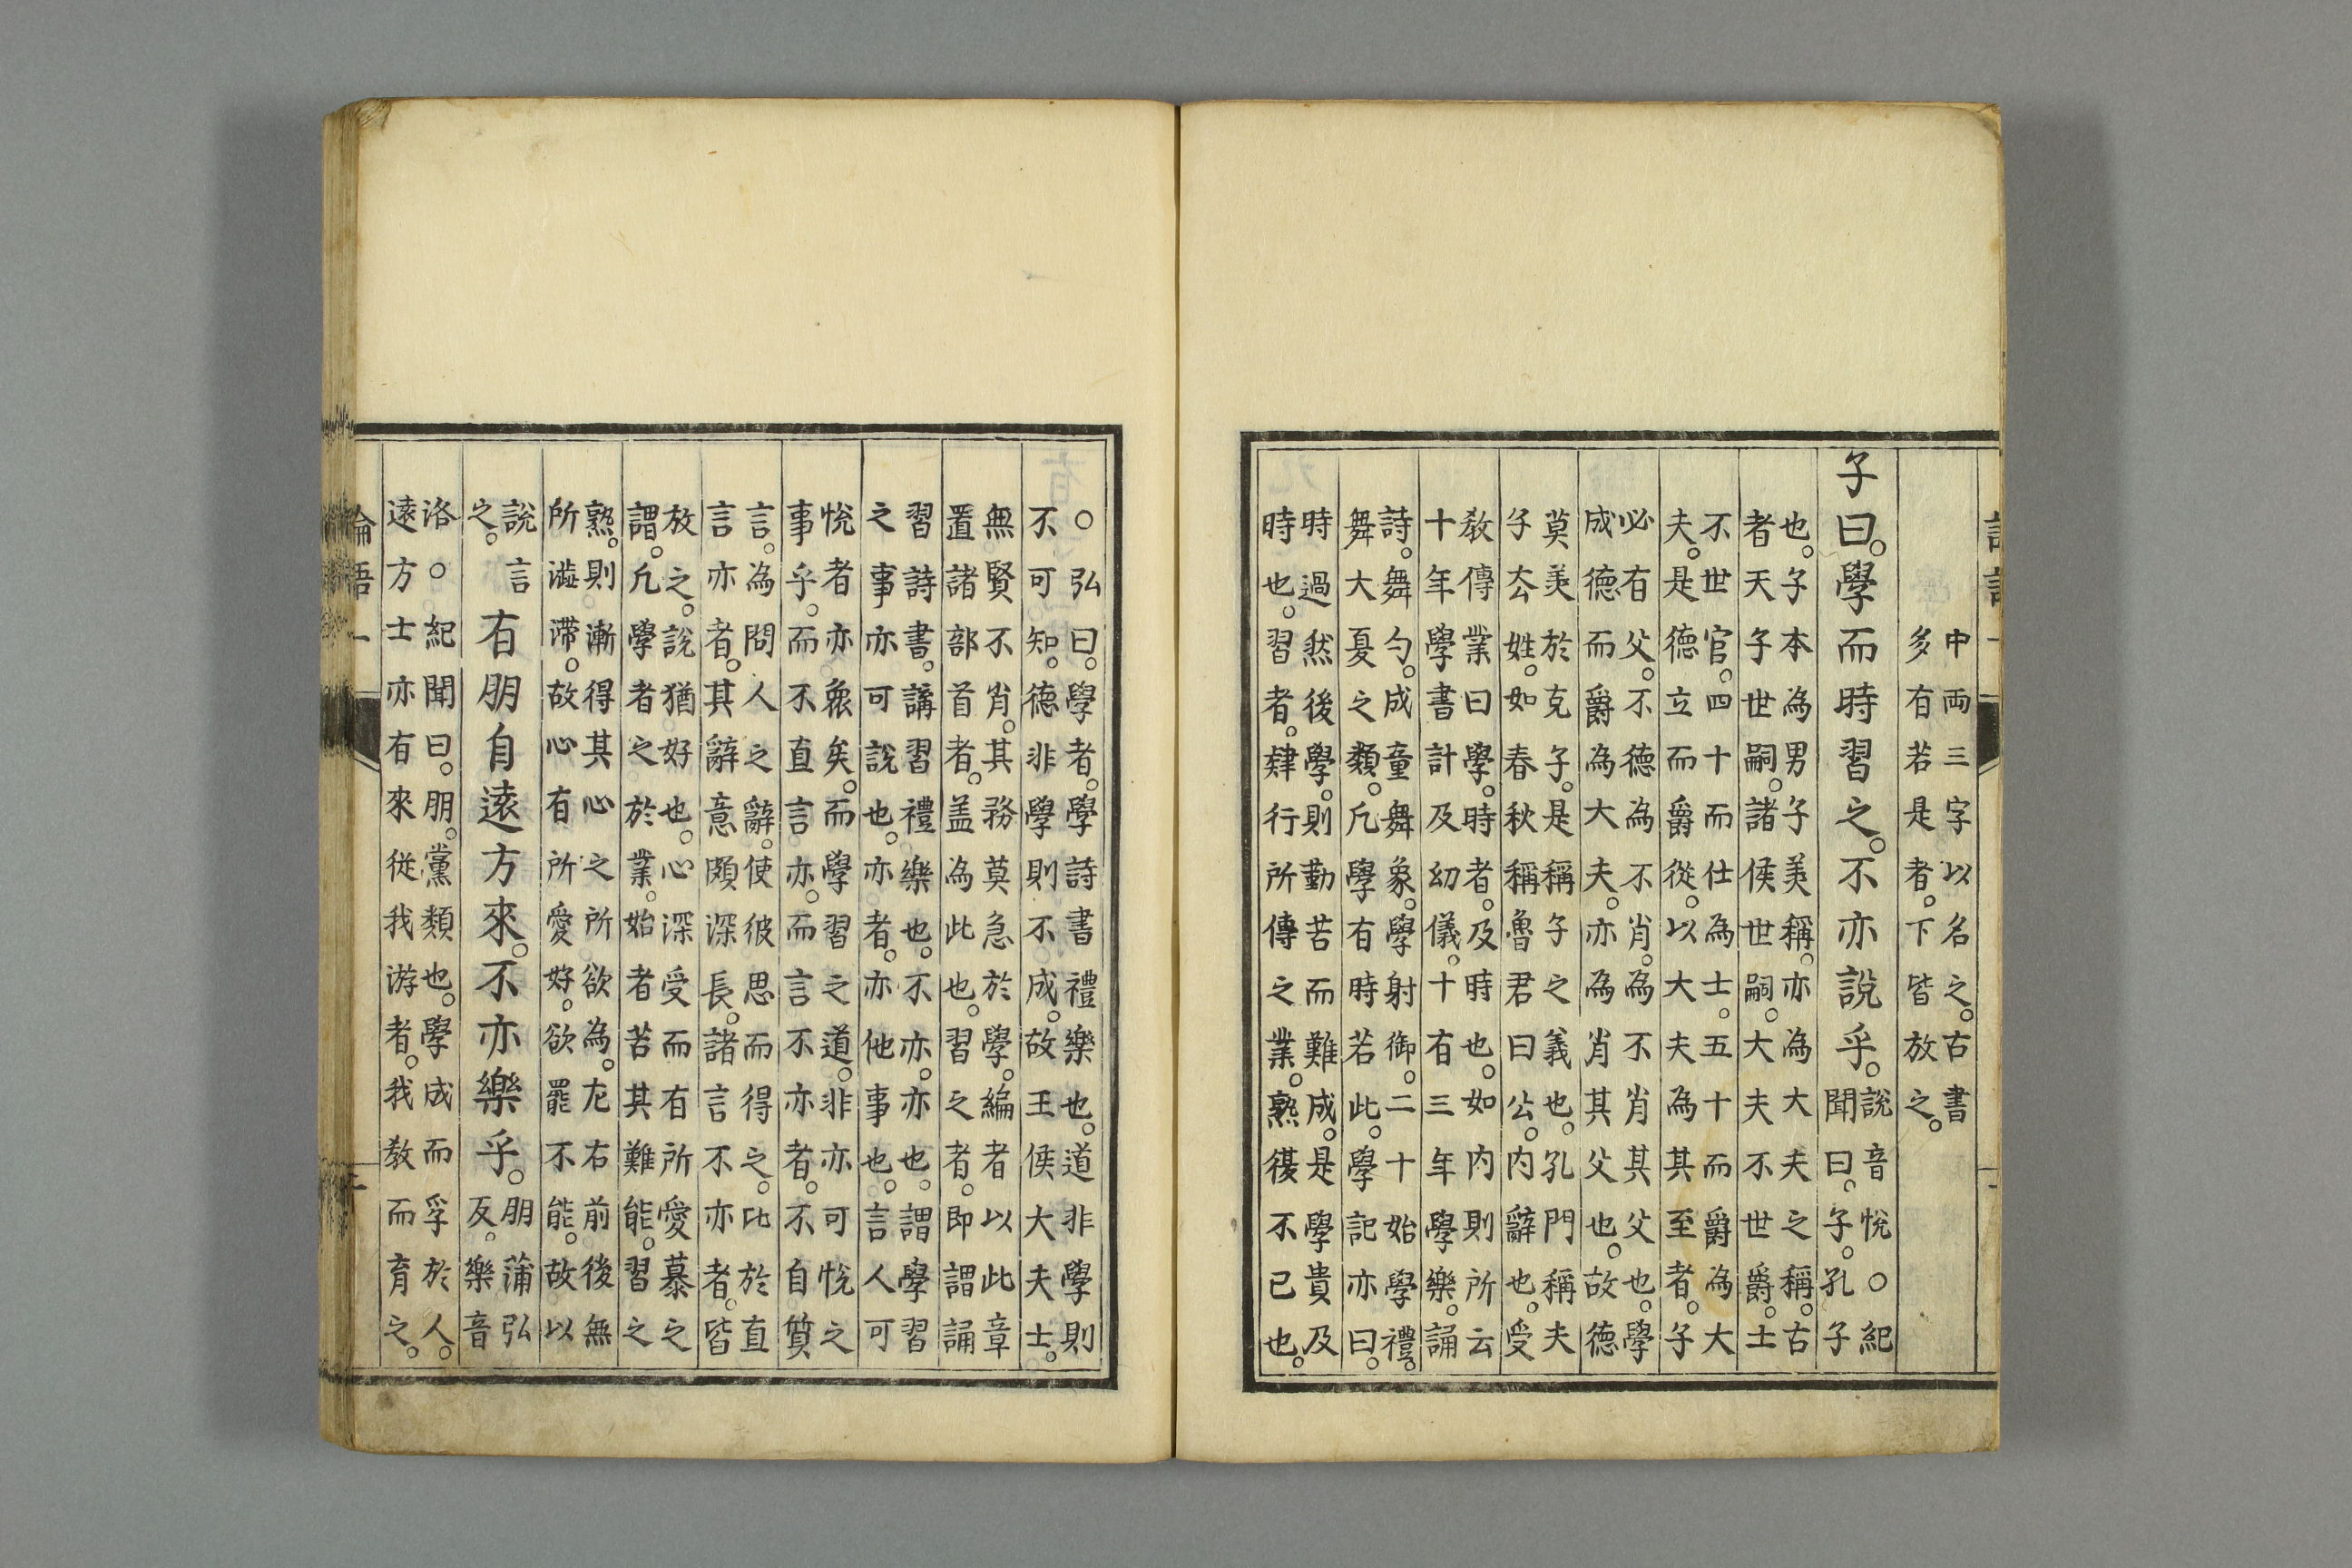 中両三字以名之。古書
多有若是者。下皆放之。
子曰。學而時習之。不亦說乎。
說音悅○紀
聞曰。子。孔子
也。子本為男子美稱。亦為大夫之稱。古
者天子世嗣。諸侯世嗣。大夫不世爵。士
不世官。四十而仕為士。五十而爵為大
夫。是德立而爵從。以大夫為其至者。子
必有父。不德為不肖。為不肖其父也。學
成德而爵為大夫。亦為肖其父也。故德
莫美於克子。是稱子之義也。孔門稱夫
子厺姓。如春秋稱魯君曰公。内辭也。受
敎傳業曰學。時者。及時也。如内則所云
十年學書計及幼儀。十有三年學樂。誦
詩。舞勺。成童舞象。學射御。二十始學禮。
舞大夏之類。凡學有時若此。學記亦曰。
時過然後學。則勤苦而難成。是學貴及
時也。習者。肄行所傳之業。熟復不已也。
○弘曰。學者。學詩書禮樂也。道非學則
不可知。德非學則不成。故王侯大夫士。
無賢不肖。其務莫急於學。編者以此章
置諸部首者。盖為此也。習之者。即謂誦
習詩書。講習禮樂也。不亦。亦也。謂學習
之事亦可說也。亦者。亦他事也。言人可
悅者亦衆矣。而學習之道。非亦可悅之
事乎。而不直言亦。而言不亦者。不自質
言。為問人之辭。使彼思而得之。比於直
言亦者。其辭意頗深長。諸言不亦者。皆
放之。說猶好也。心深受而有所愛慕之
謂。凡學者之於業。始者苦其難能。習之
熟。則漸得其心之所欲為。左右前後無
所澁滯。故心有所愛好。欲罷不能。故以
說言
之。
有朋自遠方來。不亦樂乎。
朋蒲弘
反。樂音
洛○紀聞曰。朋。黨類也。學成而孚於人。
遠方士亦有來從我游者。我敎而育之。
論語一